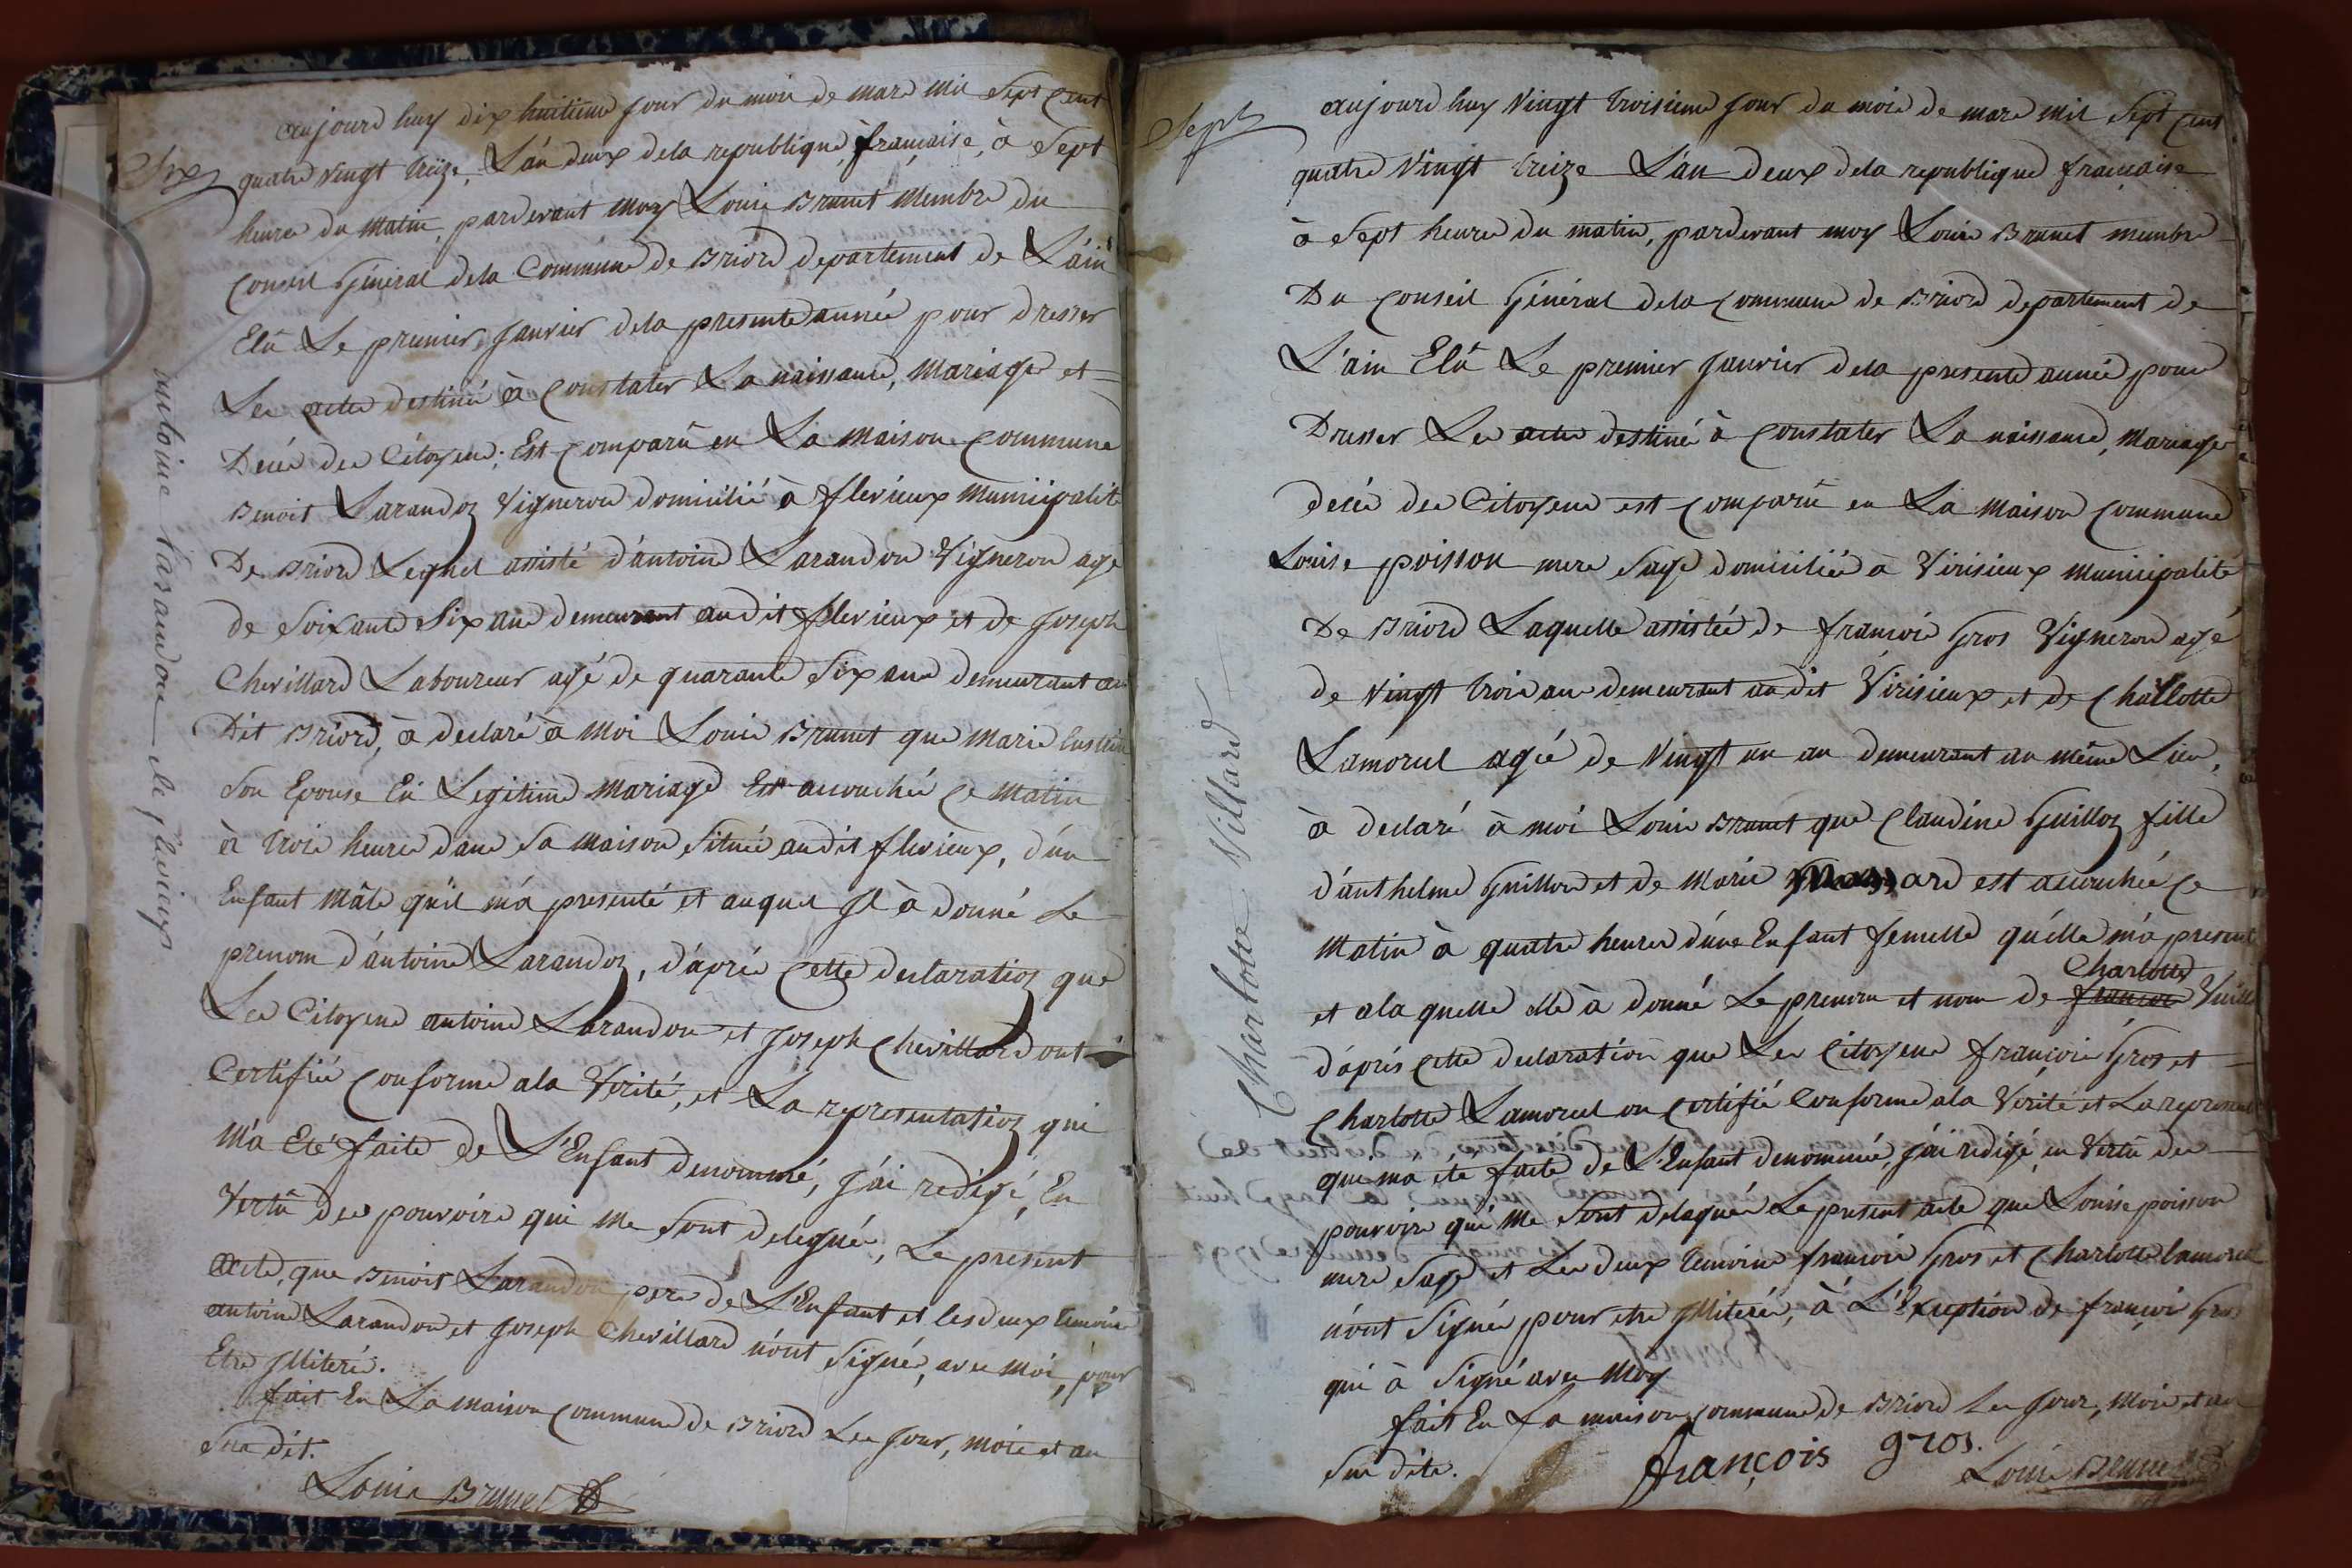 Six
aujourd huy dix huitieme jour du mois de mars mil Sept Cent
quatre vingt treize, L'an deux dela republique française, à Sept
heures du Matin, pardevant moy Louis Brunet Membre du
Conseil Géneral dela Commune de Briord departement de L'ain
Elû Le premier janvier dela presente année pour dresser
Les actes destinés à Constater La naissance, Mariage et
Decès des Citoyens; Est Comparû en La Maison Commune
Benoit Larandoz Vigneron domicilié à flevieux Municipalité
De Briord Lequel assisté d'antoine Larandon Vigneron agé
de Soixante Six ans demeurant audit flevieux et de joseph
Chevillard Laboureur agé de quarante Six ans demeurant au
Dit Briord, à declaré à Moi Louis Brunet que Marie
Son Epouse En Legitime Mariage Est accouchée Ce Matin
à trois heures dans Sa Maison Située audit flevieux, d'un
Enfant Mâle qu'il m'a presenté et auquel Il à donné Le
prenom d'antoine Larandoz, d'après Cette declaration que
Les Citoyens antoine Larandon et joseph Chevillard ont
Certifiée Conforme ala Vérité, et La representation qui
M'a Eté faite de L'Enfant denommé, j'ai redigé, En
Vertû des pouvoirs qui me Sont delegués, Le présent
acte, que Benoit Larandon pere de L'Enfant et les deux temoins
antoine Larandon et joseph Chevillard n'ont Signé, avec Moi, pour
Etre Illiteré.
fait En La maison Commune de Briord Les jour, mois et an
Sus dit.
Louis Brunet
antoine Larandon de flevieux
Sept
aujourd huy Vingt troisieme jour du mois de mars mil Sept Cent
quatre Vingt treize L'an deux dela republique française
à Sept heures du matin, pardevant moy Louis Brunet membre
Du Conseil Général dela Commune de Briord departement de
L'ain Elû Le premier janvier dela presente année pour
Dresser Les actes destiné à Constater La naissance, Mariage
decès des Citoyens est Comparû en La Maison Commune
Louise poisson mere Sage domiciliée à Virisieux Municipalité
De Briord Laquelle assistée de françois Gros Vigneron agé
de Vingt trois ans demeurant au dit Virisieux et de Challotte
Lamorel agée de Vingt un an demeurant au même Lieu,
à declaré à moi Louis Brunet que Claudine Guilloz fille
d'anthelme Guillon et de Marie est accouchée Ce
Matin à quatre heures d'une Enfant femelle qu'elle m'a presenté
Charlotte
et ala quelle elle à donné Le prenom et nom de
d'après Cette declaration que Les Citoyens françois Gros et
Charlotte Lamorel on Certifié Conforme ala Vérité et La
qui ma ete faite de L'Enfant denommée, j'ai redigé, en Vertû des
pouvoirs qui Me Sont delegués Le présent acte que Louise poisson
mere Sage et Les deux temoins françois Gros et Charlotte lamorel
n'ont Signés pour etre Illiterés, à L'Exception de françois Gros
qui à Signé avec Moy
fait En La maison Commune de Briord Les jour, Mois et an
Sus dits.
françois gros.
Louis Brunet
Charlotte Villard